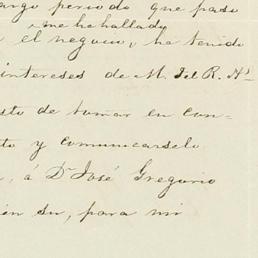 largo periodo que paso
me he hallado
el negocio, ha tenido
intereses de M. del R. Hs
to de tomar en con-
to y comunicarselo
á Dn José Gregorio
en su, para mi